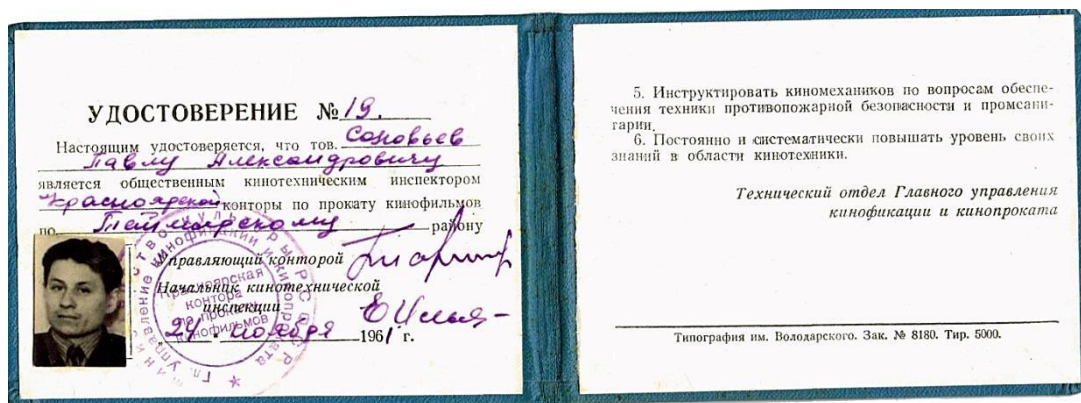 УДОСТОВЕРЕНИЕ № 19.
Настоящим удостоверяется, что тов. Соловьев
Павлу Александровичу
является общественным кинотехническим инспектором
Красноярской конторы по прокату кинофильмов
по Таймырскому району
Управляющий конторой
Начальник кинотехнической
инспекции
24 ноября 1961 г.
Красноярская
контора
по прокату
кинофильмов
5. Инструктировать киномехаников по вопросам обеспе-
чения техники противопожарной безопасности и промсани-
тарии.
6. Постоянно и систематически повышать уровень своих
знаний в области кинотехники.
Технический отдел Главного управления
кинофикации и кинопроката
Типография им. Володарского. Зак. № 8180. Тир. 5000.